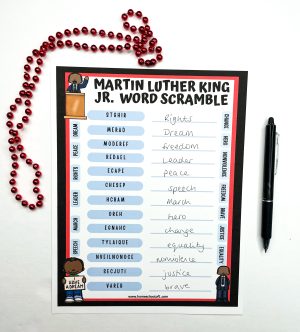 MARTIN LUTHER KING
JR. WORD SCRAMBLE
STGHIR Rights
MERAD Dream
MODEREF freedom
REDAEL Leader
ECAPE peace
CHESEP speech
HCRAM March
OREH hero
EGNAHC change
TYLAIQUE equality
NNEILNONOCE nonviolence
RECJUTI justice
VAREB brave
DREAM
PEACE
RIGHTS
LEADER
MARCH
SPEECH
CHANGE
HERO
NONVIOLENCE
FREEDOM
BRAVE
JUSTICE
EQUALITY
I HAVE
A DREAM